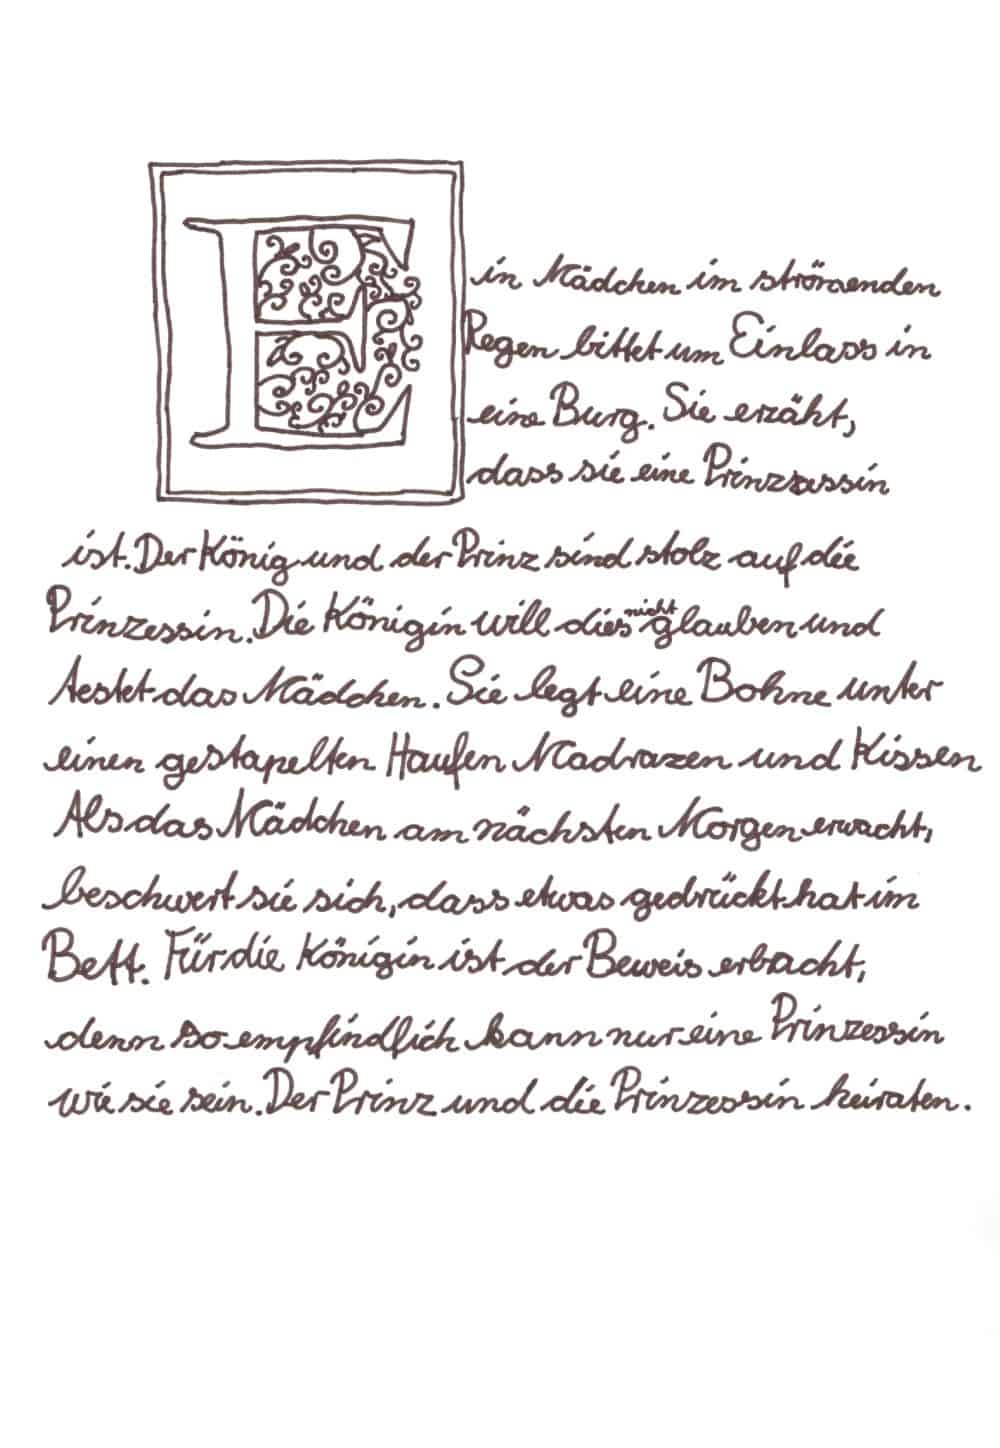 Ein Mädchen im strömenden
Regen bittet um Einlass in
eine Burg. Sie erzählt,
dass sie eine Prinzessin
ist. Der König und der Prinz sind stolz auf die
Prinzessin. Die Königin will dies nicht glauben und
testet das Mädchen. Sie legt eine Bohne unter
einen gestapelten Haufen Madrazen und Kissen
Als das Mädchen am nächsten Morgen erwacht,
beschwert sie sich, dass etwas gedrückt hat im
Bett. Für die Königin ist der Beweis erbracht,
denn so empfindlich kann nur eine Prinzessin
wie sie sein. Der Prinz und die Prinzessin heiraten.